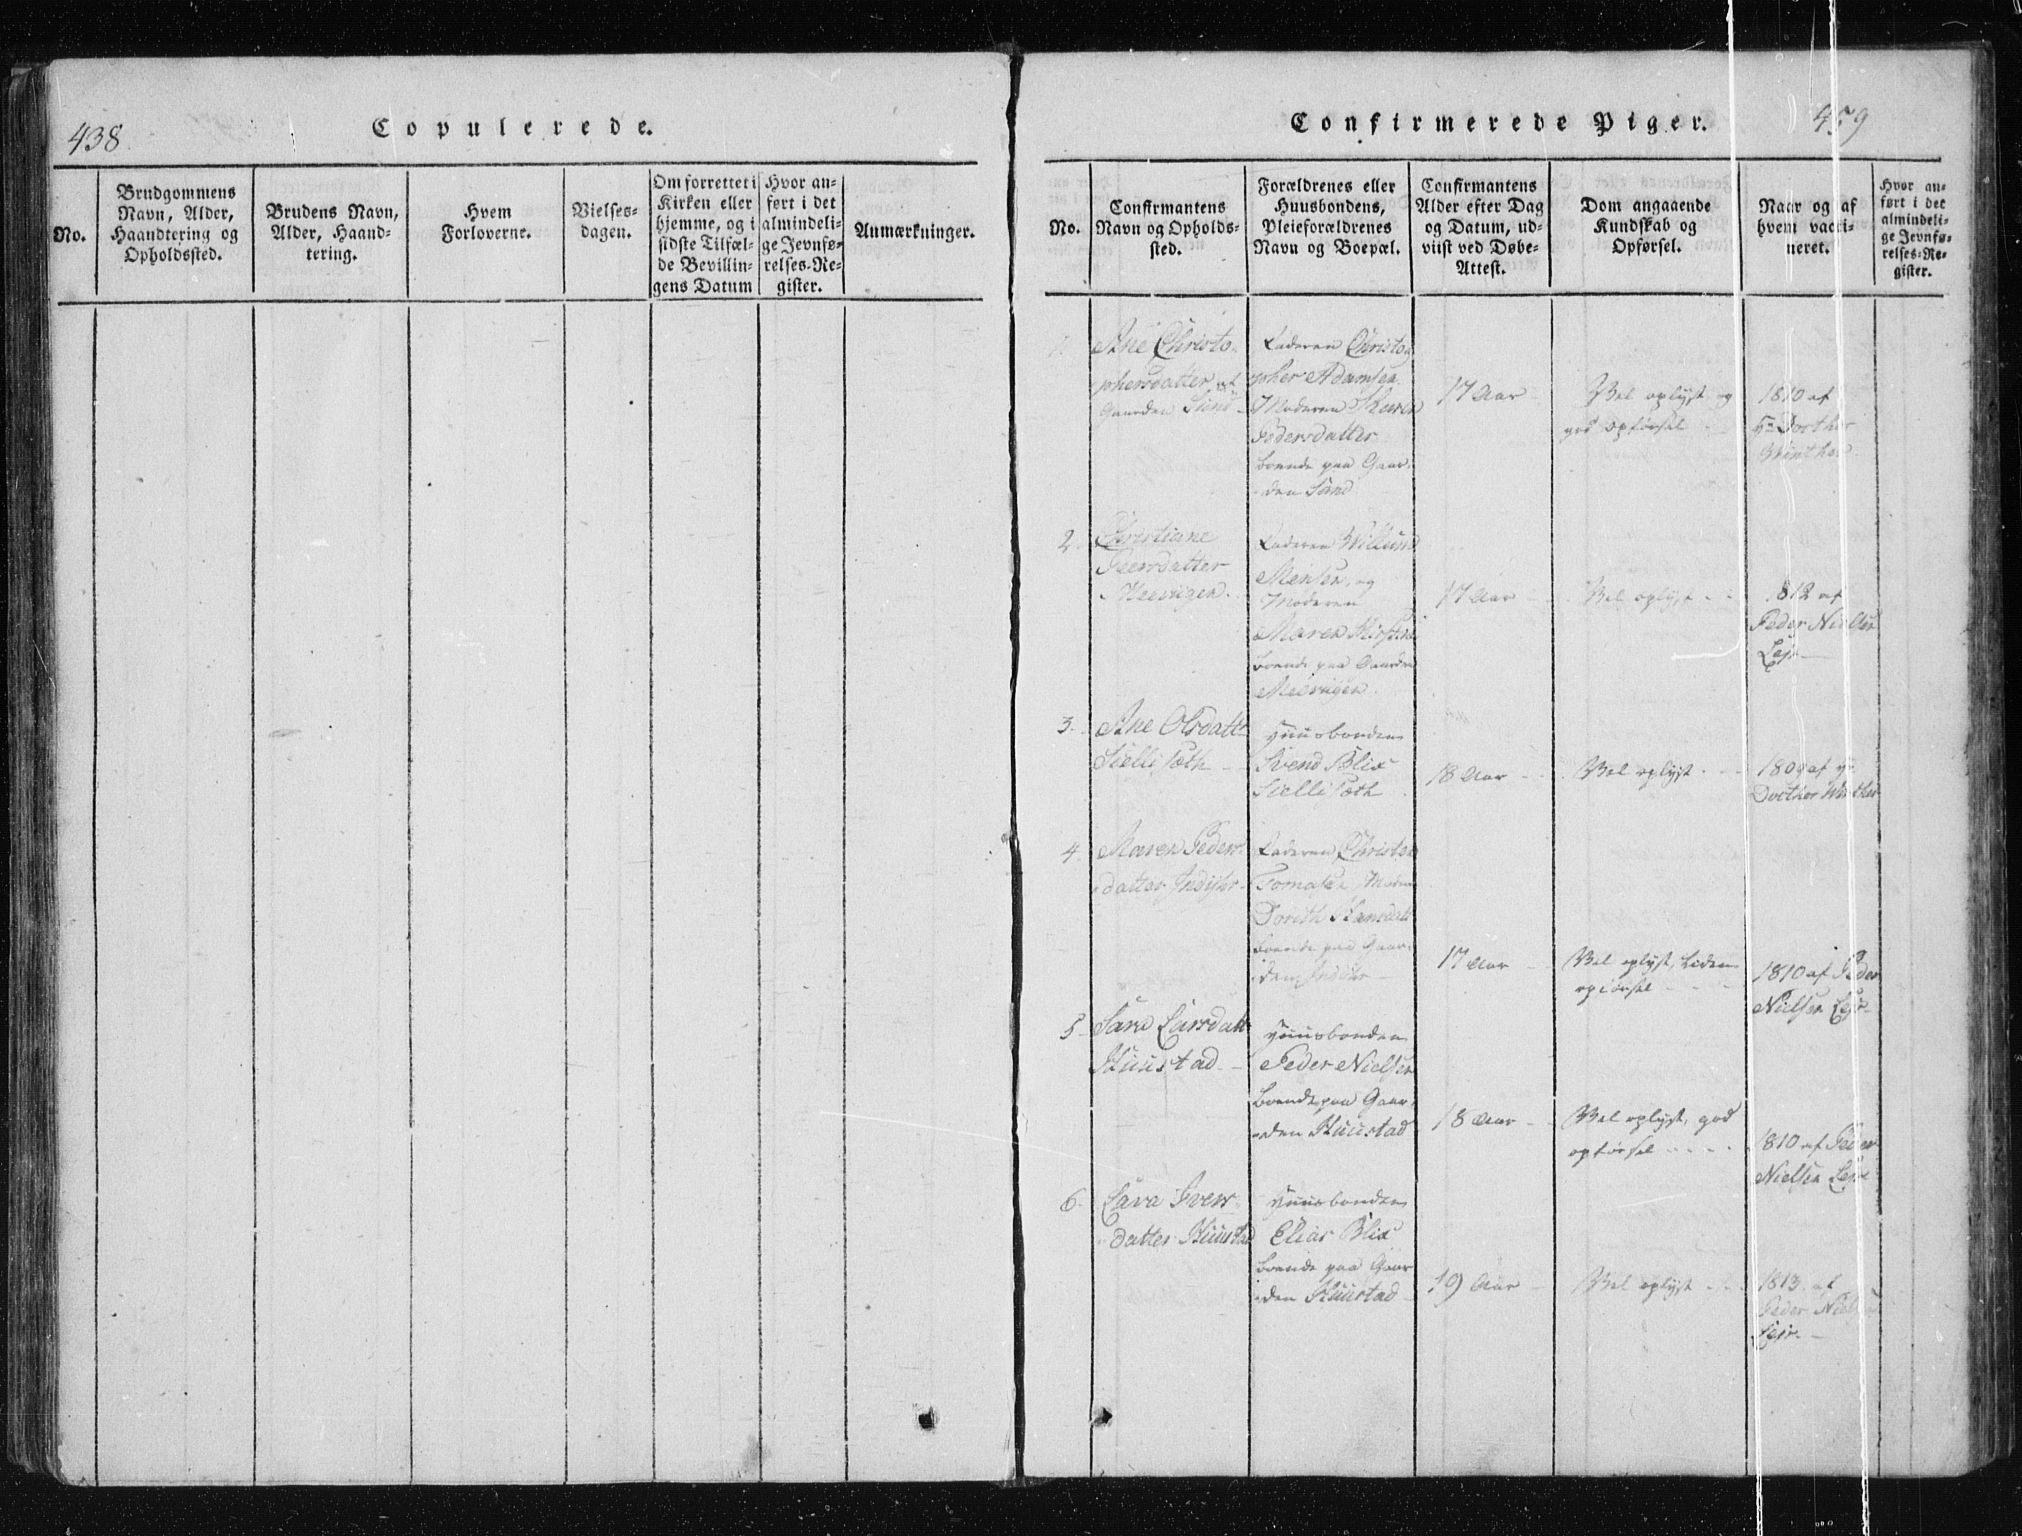 438.
Copulerede.
No.
Brudgommens
Navn, Alder,
Haandtering og
Opholdssted.
Brudens Navn,
Alder, Haand-
tering.
Hvem
Forloverne.
Vielses-
dagen.
Om forrettet i
Kirken eller
hjemme, og i
sidste Tilfæl-
de Bevillin-
gens Datum
Hvor an-
ført i det
almindeli-
ge Jevnfø-
relses-Re-
gister.
Anmærkninger.
Confirmerede Piger.
459
No.
Confirmantens
Navn og Opholds-
sted.
Forældrenes eller
Huusbondens,
Pleieforældrenes
Navn og Boepæl.
Confirmantens
Alder efter Dag
og Datum, ud-
viist ved Døbe-
Attest.
Dom angaaende
Kundskab og
Opførsel.
Naar og af
hvem vacci-
neret.
Hvor an-
ført i det
almindeli-
ge Jevnfø-
relses-Re-
gister.
1.
Ane Christo-
phersdatter af
Gaarden Sund
Faderen Christo-
pher Adamsen
Moderen
Pedersdatter
boende paa Gaar-
den Sund
17 Aar
Vel oplyst og
god opførsel
1810 af
Dorthea
Winther
2.
Christiane
Meevigen
Faderen Willum
Mensen, og
Moderen
Maren
boende paa Gaarden
Meevigen
17 Aar
Vel oplyst
1812 af
Peder Nielsen
Lejr
3.
Ane Olsdatt
Huusbonden
Svend Blix
18 Aar
Vel oplyst
1809 af
Dorthea Winther
4.
Maren Peders-
datter Indijhr
Faderen Christen
Tomasen Moderen
Dorith Hansdatt
boende paa Gaar-
den Indijhr
17 Aar
Vel oplyst, Liden
opførsel
1810 af Peder
Nielsen Lejr
5.
Sara Larsdatt
Huustad
Huusbonden
Peder Nielsen
boende paa Gaar-
den Huustad
18 Aar
Vel oplyst, god
opførsel
1810 af Peder
Nielsen Lejr
6.
Lava Ivers-
datter Huustad
Huusbonden
Elias Blix
boende paa Gaar
den Huustad
19 Aar
Vel oplyst
1813 af
Peder Nielsen
Lejr